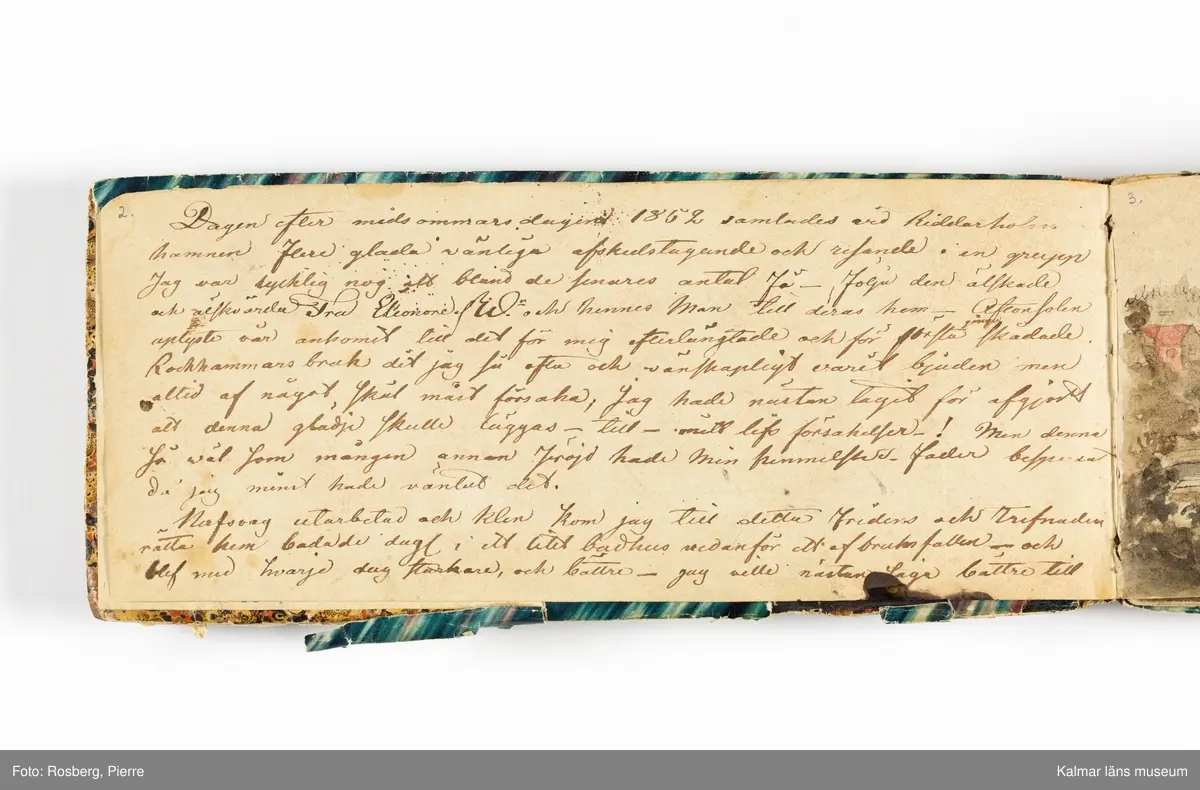 2.
Dagen efter midsommarsdagen 1862 samlades vid Ridderholms
hamnen flere glada vänliga afskedstagande och resande i en grupp
Jag var lycklig nog att bland de senares antal få följa den älskade
och älskvärda Fru Eleonore W och hennes Man till deras hem – Aftonsolen
uplyste vår ankomst till det för mig efterlängtade och för första gången skådade
Rockhammars bruk dit jag så ofta och vänskapligt varit bjuden men
alltid af något skäl måst försaka, Jag hade nästan tagit för afgjordt
att denna glädje skulle läggas – till – mitt lifs försakelser – ! Men denna
så väl som mången annan fröjd hade min himmelske Fader besparat
då jag minst hade väntat det.
Nafsvag utarbetad och klen kom jag till detta fridens och trefnaden
rätta hem badade dagl i ett litet badhus nedanför ett af bruksfallen – och
blef med hvarje dag starkare, och bättre – jag ville nästan säga bättre till
3.
Foto: Rosberg, Pierre
Kalmar läns museum